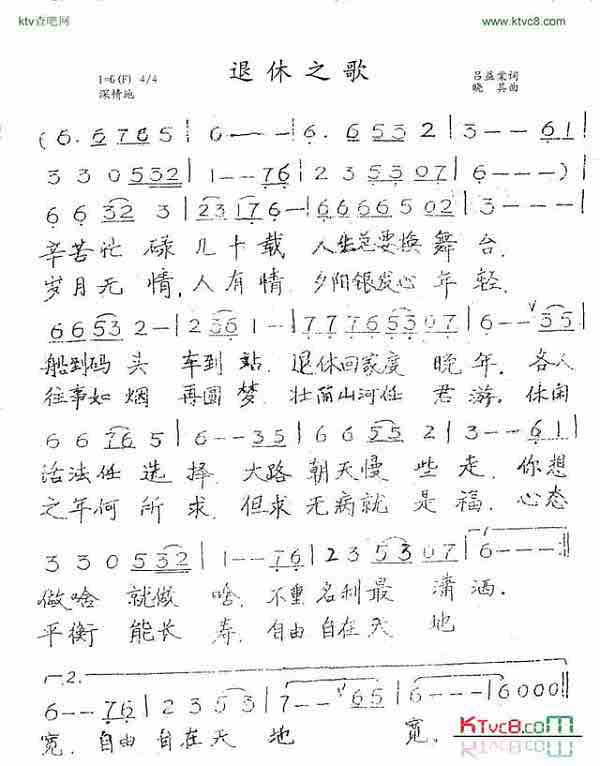 ktv查吧网
www.ktvc8.com
退休之歌
1=G(F) 4/4
深情地
吕益棠词
晓其曲
(6. 5 7 6 5 | 6 - - - | 6. 6 5 3 2 | 3 - - 6 1 |
3 3 0 5 3 2 | 1 - - 7 6 | 2 3 5 3 0 7 | 6 - - - )
6 6 3 2 3 | 2 3 1 7 6 - | 6 6 6 6 5 0 2 | 3 - - - |
辛苦忙碌几十载 人生总要换舞台.
岁月无情,人有情 夕阳银发心年轻.
6 6 5 3 2 - | 2 3 6 1 - | 7 7 7 6 5 3 0 7 | 6 - - V 3 5 |
船到码头 车到站. 退休回家度晚年. 各人
往事如烟 再圆梦. 壮丽山河任君游. 休闲
6 6 7 6 5 | 6 - - 3 5 | 6 6 5 5 2 | 3 - - 6 1 |
活法任选择. 大路朝天慢些走. 你想
之年何所求. 但求无病就是福. 心态
3 3 0 5 3 2 | 1 - - 7 6 | 2 3 5 3 0 7 | 6 - - - :||
做啥就做啥. 不重名利最潇洒.
平衡能长寿. 自由自在天地
2.
6 - - 7 6 | 2 3 5 3 | 7 - - V 6 5 | 6 - - - | 6 0 0 0 ||
宽. 自由自在天地宽.
KTvc8.com